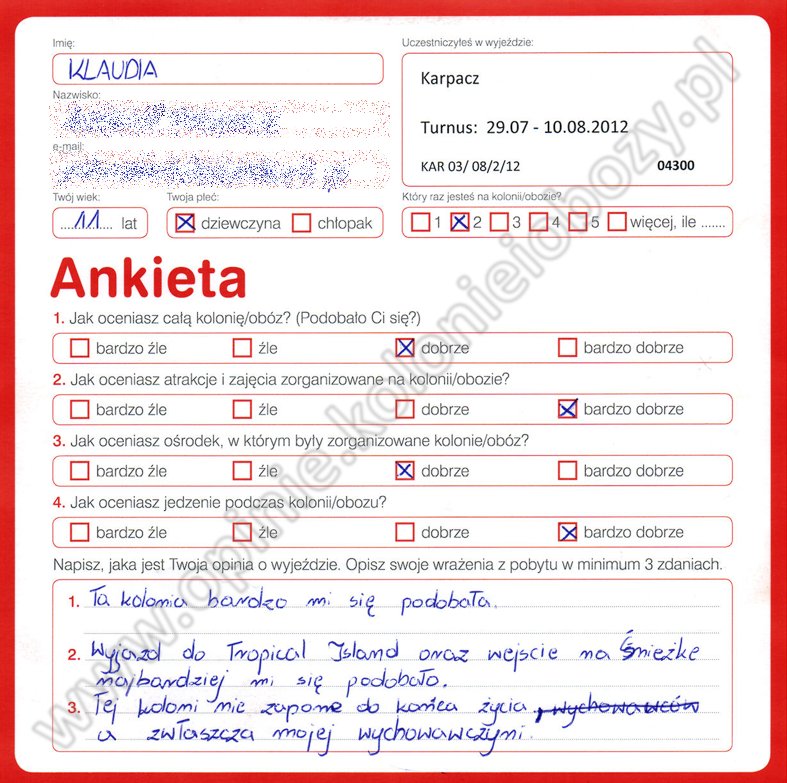 Imię:
KLAUDIA
Nazwisko:
e-mail:
Twój wiek:
....11.... lat
Twoja płeć:
dziewczyna chłopak
Uczestniczyłeś w wyjeździe:
Karpacz
Turnus: 29.07 - 10.08.2012
KAR 03/ 08/2/12 04300
Który raz jesteś na kolonii/obozie?
1 2 3 4 5 więcej, ile .......
Ankieta
1. Jak oceniasz całą kolonię/obóz? (Podobało Ci się?)
bardzo źle źle dobrze bardzo dobrze
2. Jak oceniasz atrakcje i zajęcia zorganizowane na kolonii/obozie?
bardzo źle źle dobrze bardzo dobrze
3. Jak oceniasz ośrodek, w którym były zorganizowane kolonie/obóz?
bardzo źle źle dobrze bardzo dobrze
4. Jak oceniasz jedzenie podczas kolonii/obozu?
bardzo źle źle dobrze bardzo dobrze
Napisz, jaka jest Twoja opinia o wyjeździe. Opisz swoje wrażenia z pobytu w minimum 3 zdaniach.
1. Ta kolonia bardzo mi się podobała.
2. Wyjazd do Tropical Island oraz wejscie na Śnieżke
najbardziej mi się podobało.
3. Tej koloni nie zapone do końca życia, wychowawców
a zwłaszcza mojej wychowawczyni.
www.opinie.kolonieiobozy.pl